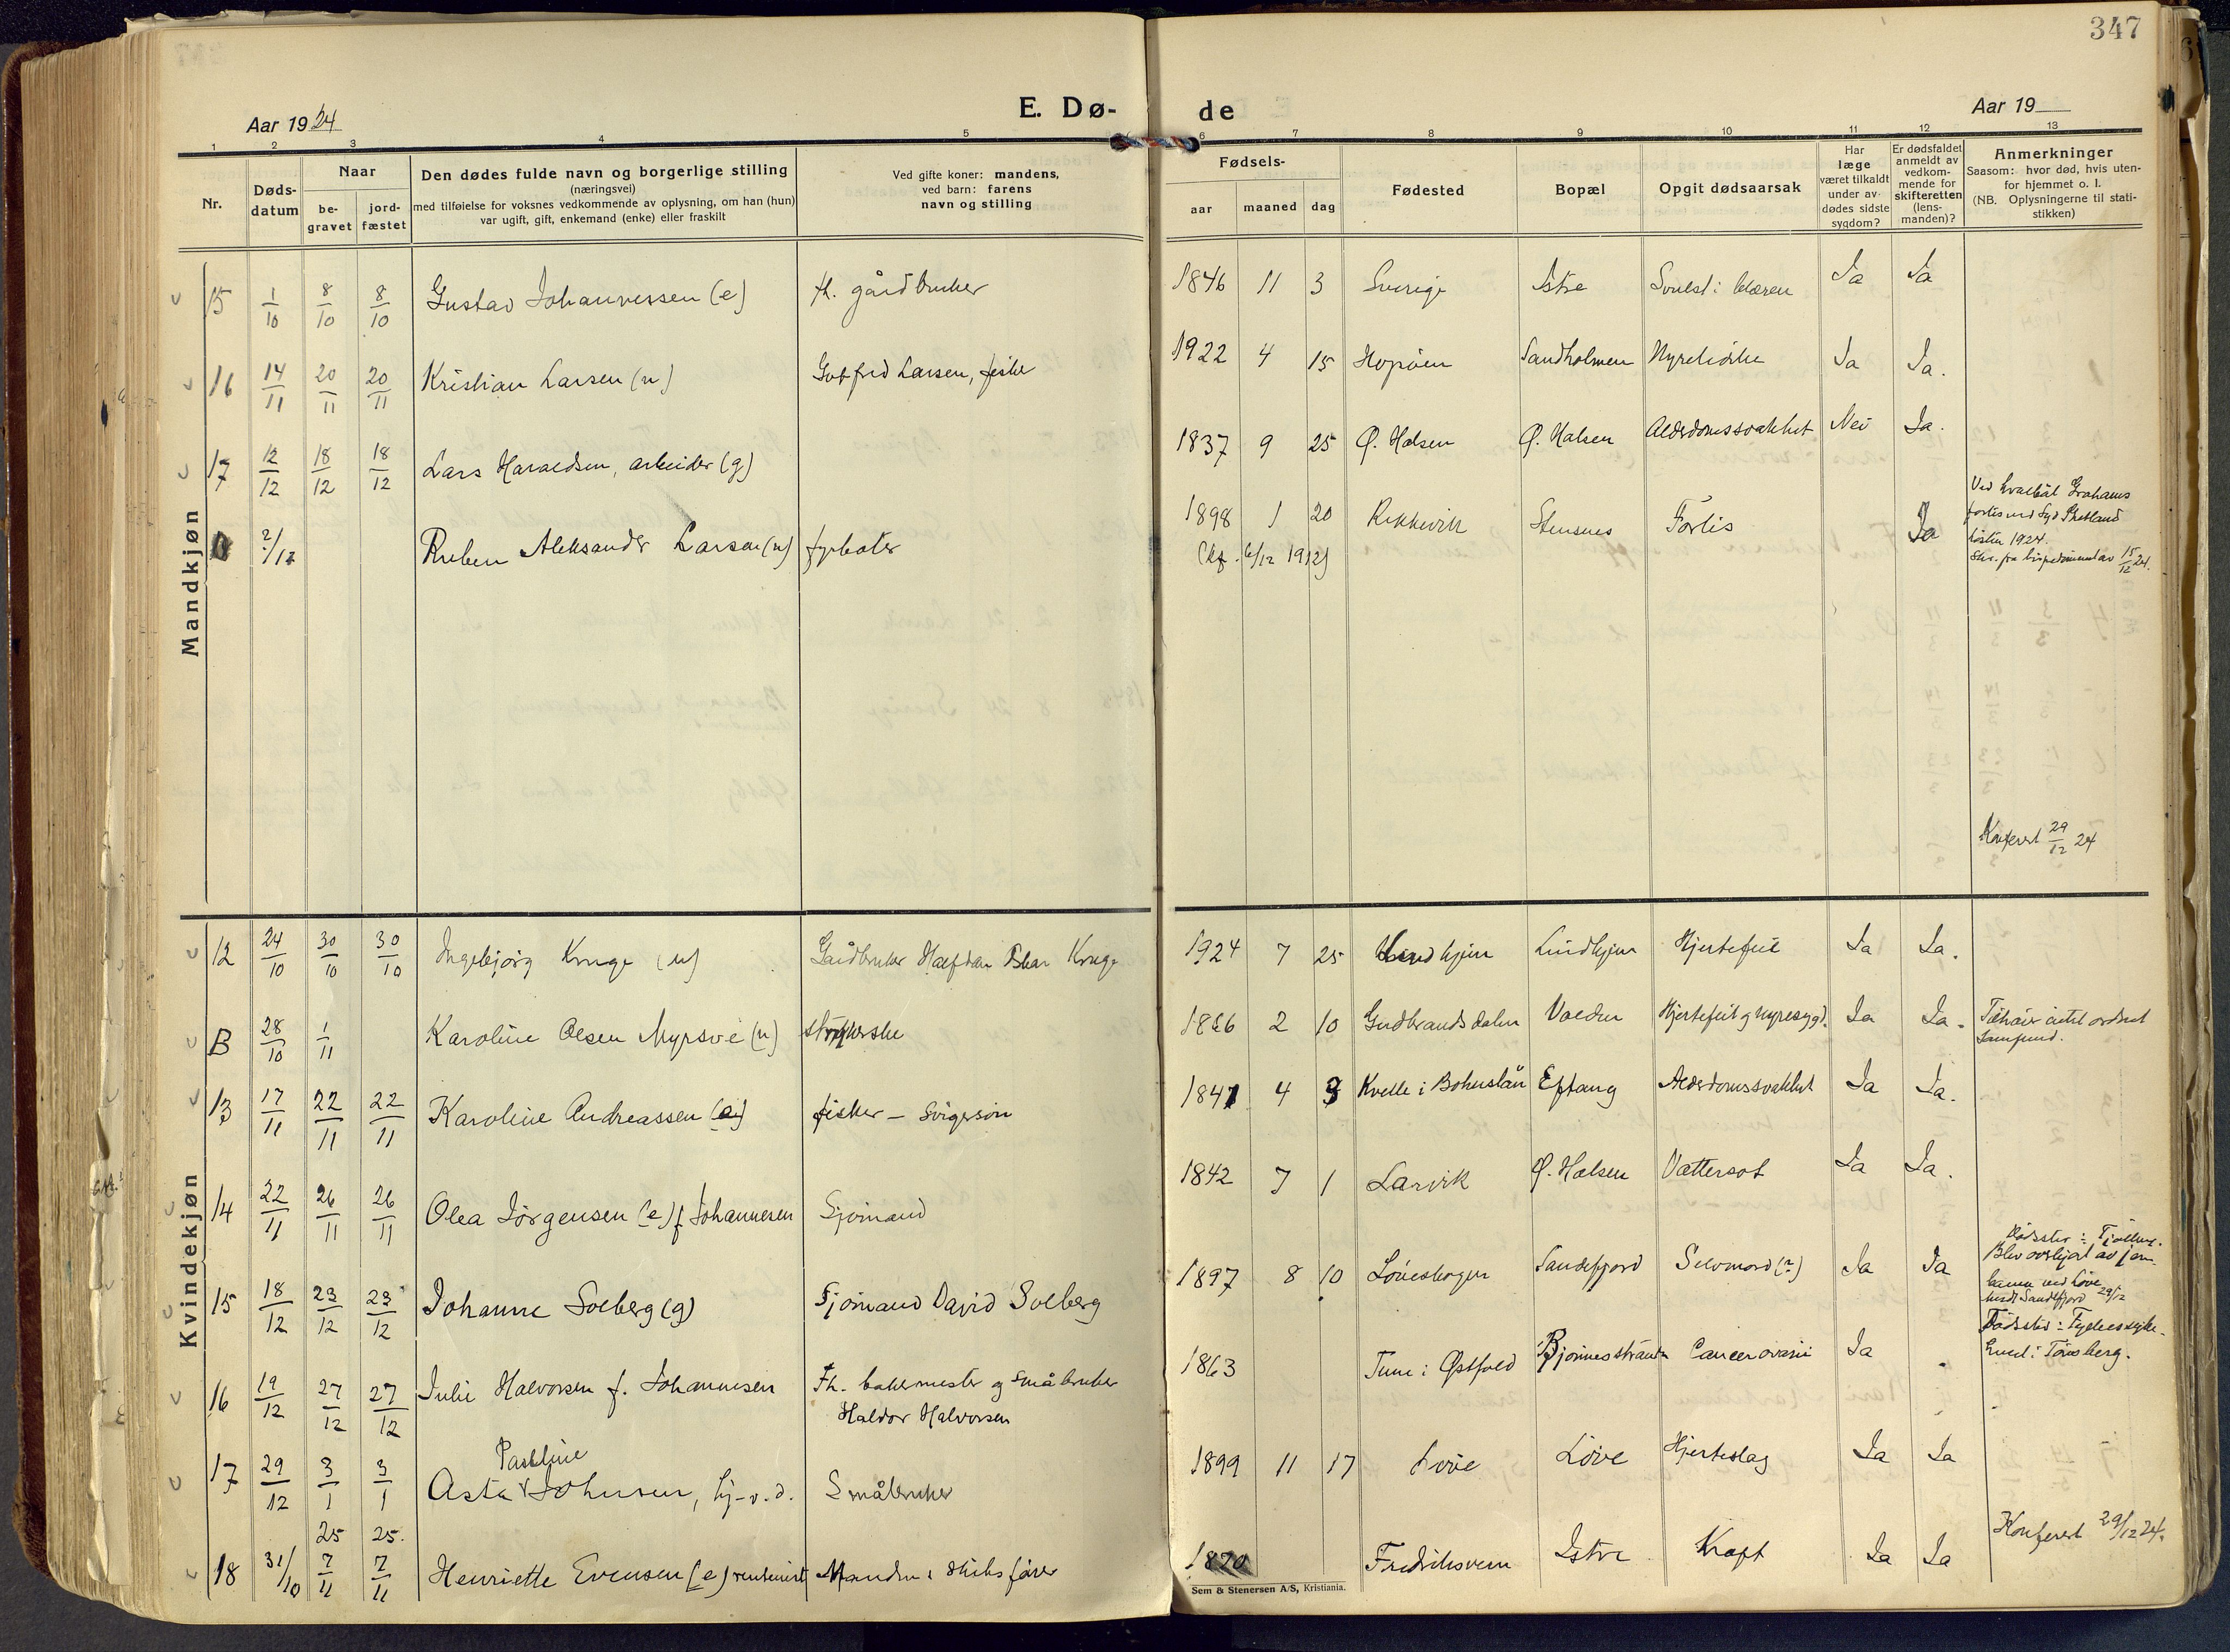 347
Aar 1924
E. Dø-
de
Aar 19
1 2 3 4 5 6 7 8 9 10 11 12 13
Nr.
Døds-
datum
Naar
be-
gravet
jord-
fæstet
Den dødes fulde navn og borgerlige stilling
(næringsvei)
med tilføielse for voksnes vedkommende av oplysning, om han (hun)
var ugift, gift, enkemand (enke) eller fraskilt
Ved gifte koner: mandens,
ved barn: farens
navn og stilling
Fødsels-
aar maaned dag
Fødested
Bopæl
Opgit dødsaarsak
Har
læge
været tilkaldt
under av-
dødes sidste
sygdom?
Er dødsfaldet
anmeldt av
vedkom-
mende for
skifteretten
(lens-
manden)?
Anmerkninger
Saasom: hvor død, hvis uten-
for hjemmet o. l.
(NB. Oplysningerne til stati-
stikken)
Mandkjøn
15 1/10 8/10 8/10 Gustav Johannessen (e) fh. gårdbruker 1846 11 3 Sverige Istre Svulst i blæren Ja Ja
16 14/11 20/11 20/11 Kristian Larsen (u) Gotfred Larsen, fisker 1922 4 15 Hopøen Sandholmen Ja Ja.
17 12/12 18/12 18/12 Lars Haraldsen, arbeider (g) 1837 9 25 Ø. Halsen Ø. Halsen Alderdomssvakhet Nei Ja.
?/12 Ruben Aleksander Larsen (u) fyrbøter 1898 1 20 Rekkevik Stensnes Forlis Ja
(Kf. 6/12 1912)
Ved hvalbåt Grahams
forlis ved Syd Shetland
høsten 1924.
Skr. fra bispedømmet av 15/12 24.
Konferert 29/12 24
Kvindekjøn
12 24/10 30/10 30/10 Ingebjørg Kruge (u) Gårdbruker Halfdan Oskar Kruge 1924 7 25 Lindhjem Lindhjem Hjertefeil Ja Ja.
B 28/10 1/11 Karoline Olsen Myrsve (u) strykerske 2 10 Gudbrandsdalen Hjertefeil og nyresygd. Ja Ja.
Tilhører intet ordnet
samfund.
13 17/11 22/11 22/11 Karoline Andreassen fisker - Svigersøn 1847 4 Kville i Bohuslän Eftang Alderdomssvakhet Ja Ja.
14 22/11 26/11 26/11 Olea Jørgensen (e) f Johannesen Sjømand 1842 7 1 Larvik Ø. Halsen Vattersot Ja Ja.
15 18/12 23/12 23/12 Johanne Solberg (g) Sjømand David Solberg 1897 8 10 Løveskogen Sandefjord Selvmord (?) Ja Ja
Dødssted: Tjølling.
Blev overkjørt av jern-
banen ved Løve
Sandefjord 29/12
16 19/12 27/12 27/12 Julie Halvorsen f. Johannesen Fh. bakermester og småbruker
Haldor Halvorsen
1863 Tune i Østfold Bjønnesstranda Cancer ovarie Ja
Dødssted: Fylkessyke-
huset i Tønsberg.
Pauline
17 29/12 3/1 3/1 Asta Johnsen, hj-v. d. Småbruker 1899 11 17 Løve Løve Hjerteslag Ja Ja
25 25.
Konferert 29/12 24.
18 31/10 7/11 7/11 Henriette Evensen (e) Manden: skibsfører Fredriksvern Istre Kræft Ja Ja
Sem & Stenersen A/S, Kristiania.